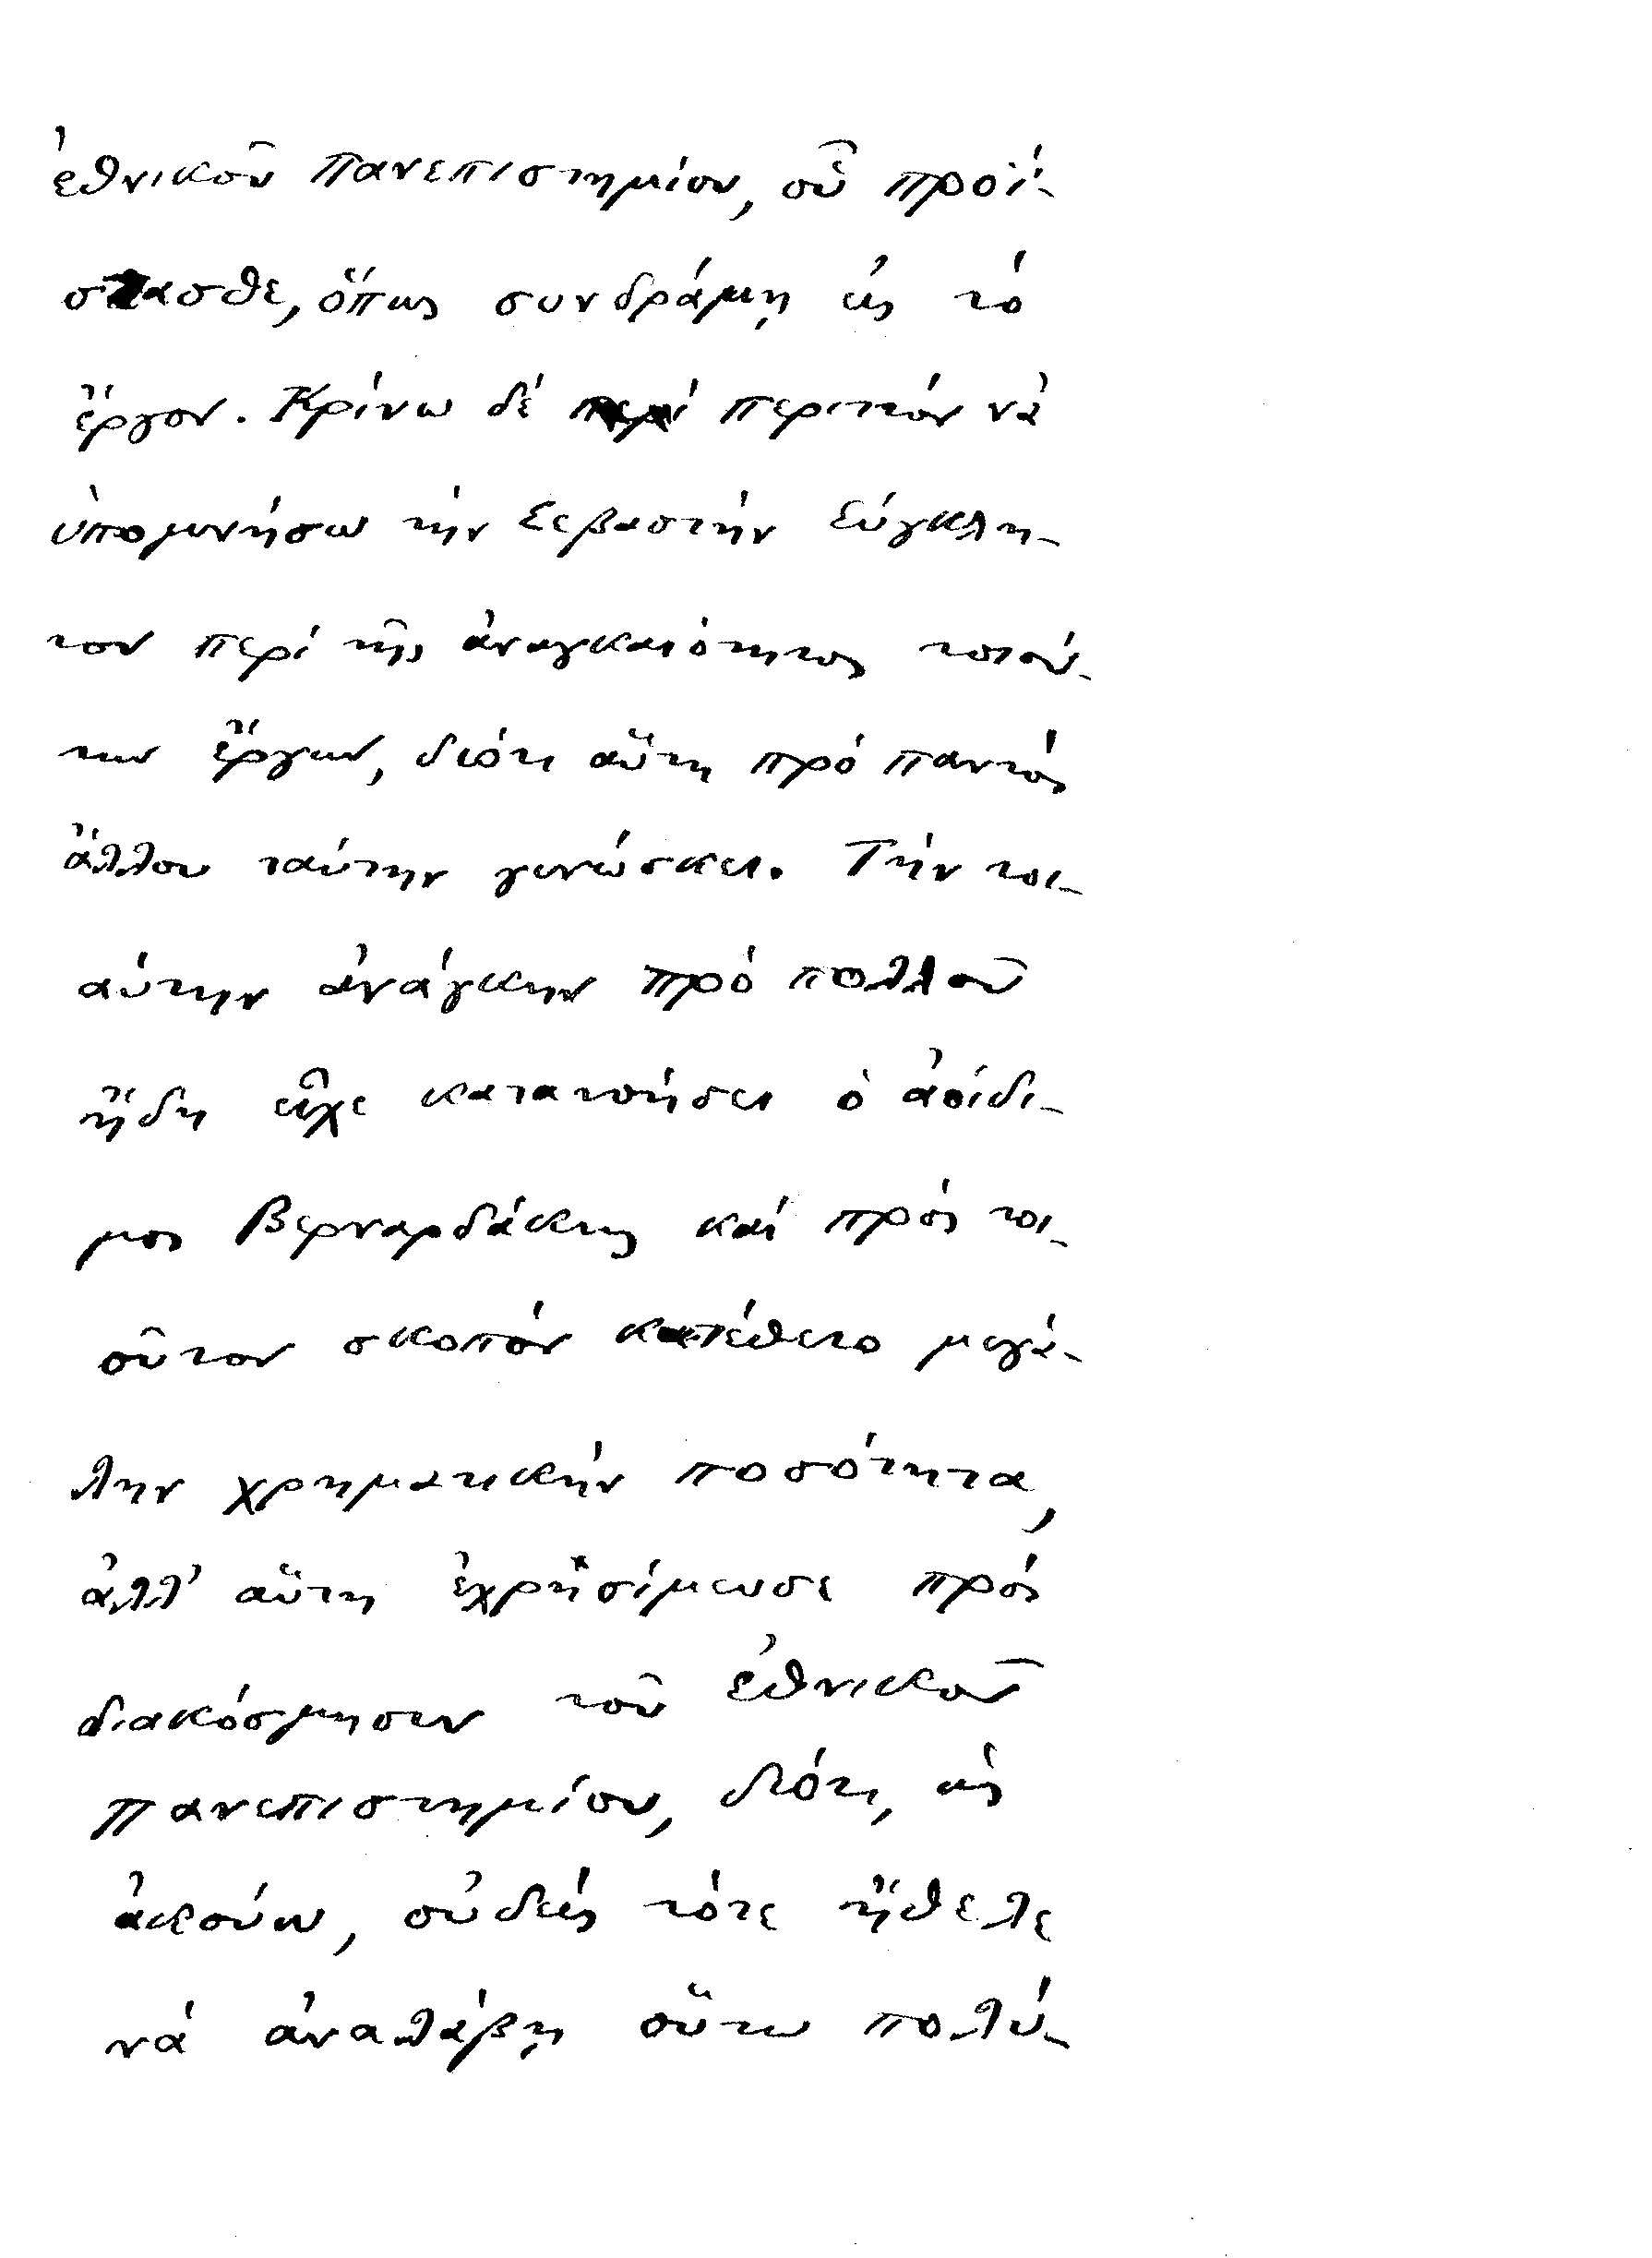 ἐθνικοῦ Πανεπιστημίου, οὗ προΐ-
στασθε, ὅπως συνδράμῃ εἰς τὸ
ἔργον. Κρίνω δὲ περιττὸν νὰ
ὑπομνήσω τὴν Σεβαστὴν Σύγκλη-
τον περὶ τῆς ἀναγκαιότητος τοιού-
των ἔργων, διότι αὕτη πρὸ παντὸς
ἄλλου ταύτην γινώσκει. Τὴν τοι-
αύτην ἀνάγκην πρὸ πολλοῦ
ἤδη εἶχε κατανοήσει ὁ ἀοίδι-
μος Βερναρδάκης καὶ πρὸς τοι-
οῦτον σκοπὸν κατέθετο μεγά-
λην χρηματικὴν ποσότητα,
ἀλλ' αὕτη ἐχρησίμευσε πρὸς
διακόσμησιν τοῦ ἐθνικοῦ
πανεπιστημίου, διότι, ὡς
ἀκούω, οὐδεὶς τότε ἤθελε
νὰ ἀναλάβῃ οὕτω πολύ-